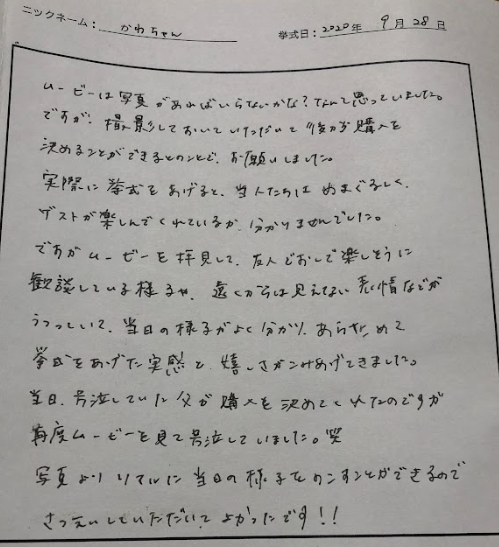 ニックネーム： かわちゃん 挙式日：2020年 9月 28日
ムービーは写真があればいらないかな？なんて思っていました。
ですが、撮影しておいていただいて後から購入を
決めることができるとのことで、お願いしました。
実際に挙式をあげると、当人たちは めまぐるしく、
ゲストが楽しんでくれているか、分かりませんでした。
ですが ムービーを拝見して、友人どおしで楽しそうに
歓談している様子や、遠くからは見えない表情などが
うつっていて、当日の様子がよく分かり、あらためて
挙式をあげた実感と、嬉しさがこみあげてきました。
当日、号泣していた父が購入を決めてくれたのですが
再度ムービーを見て号泣していました。笑
写真よりリアルに当日の様子をのこすことができるので
さつえいしていただいてよかったです！！